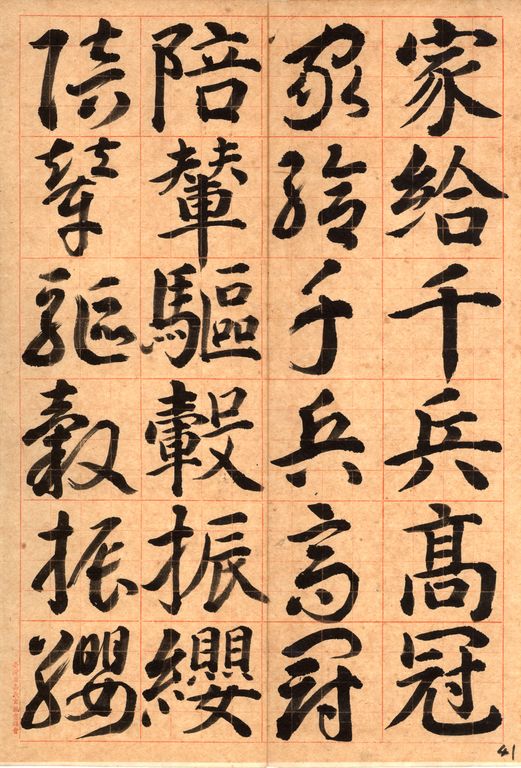 家給千兵髙冠
家給千兵高冠
陪輦驅轂振纓
陪輦驅轂振纓
41